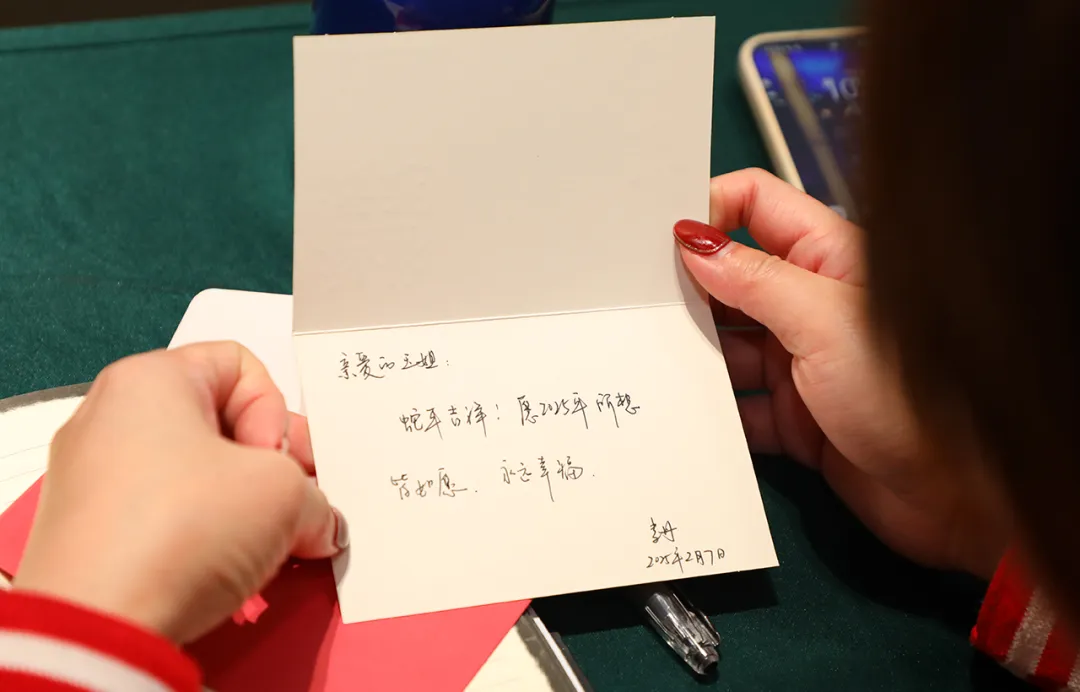 亲爱的玉姐：
蛇年吉祥！愿2025年所想
皆如愿、永远幸福.
李丹
2025年2月7日